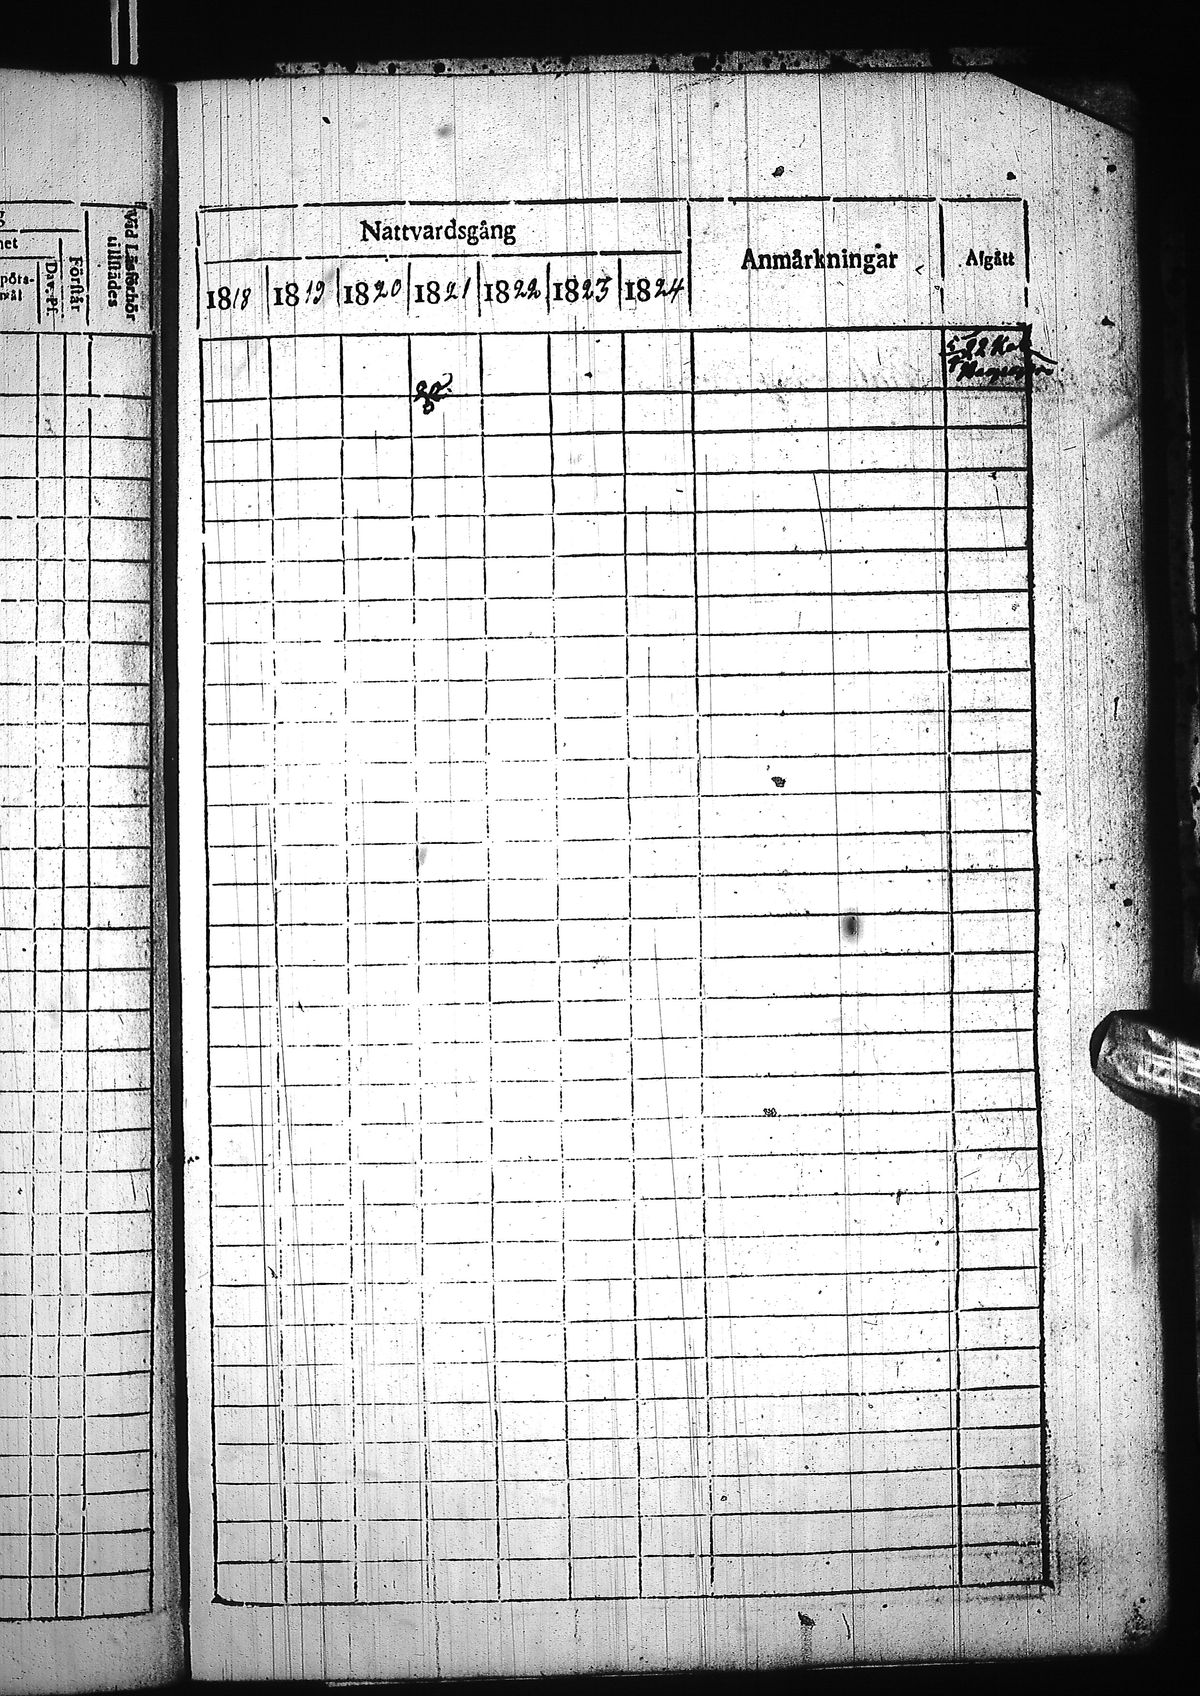 Förstår
Dav. Ps.
Vid Läsförhör
tillstädes
Nattvardsgång
Anmärkningar
Afgått
1818 1819 1820 1821 1822 1823 1824
5 22